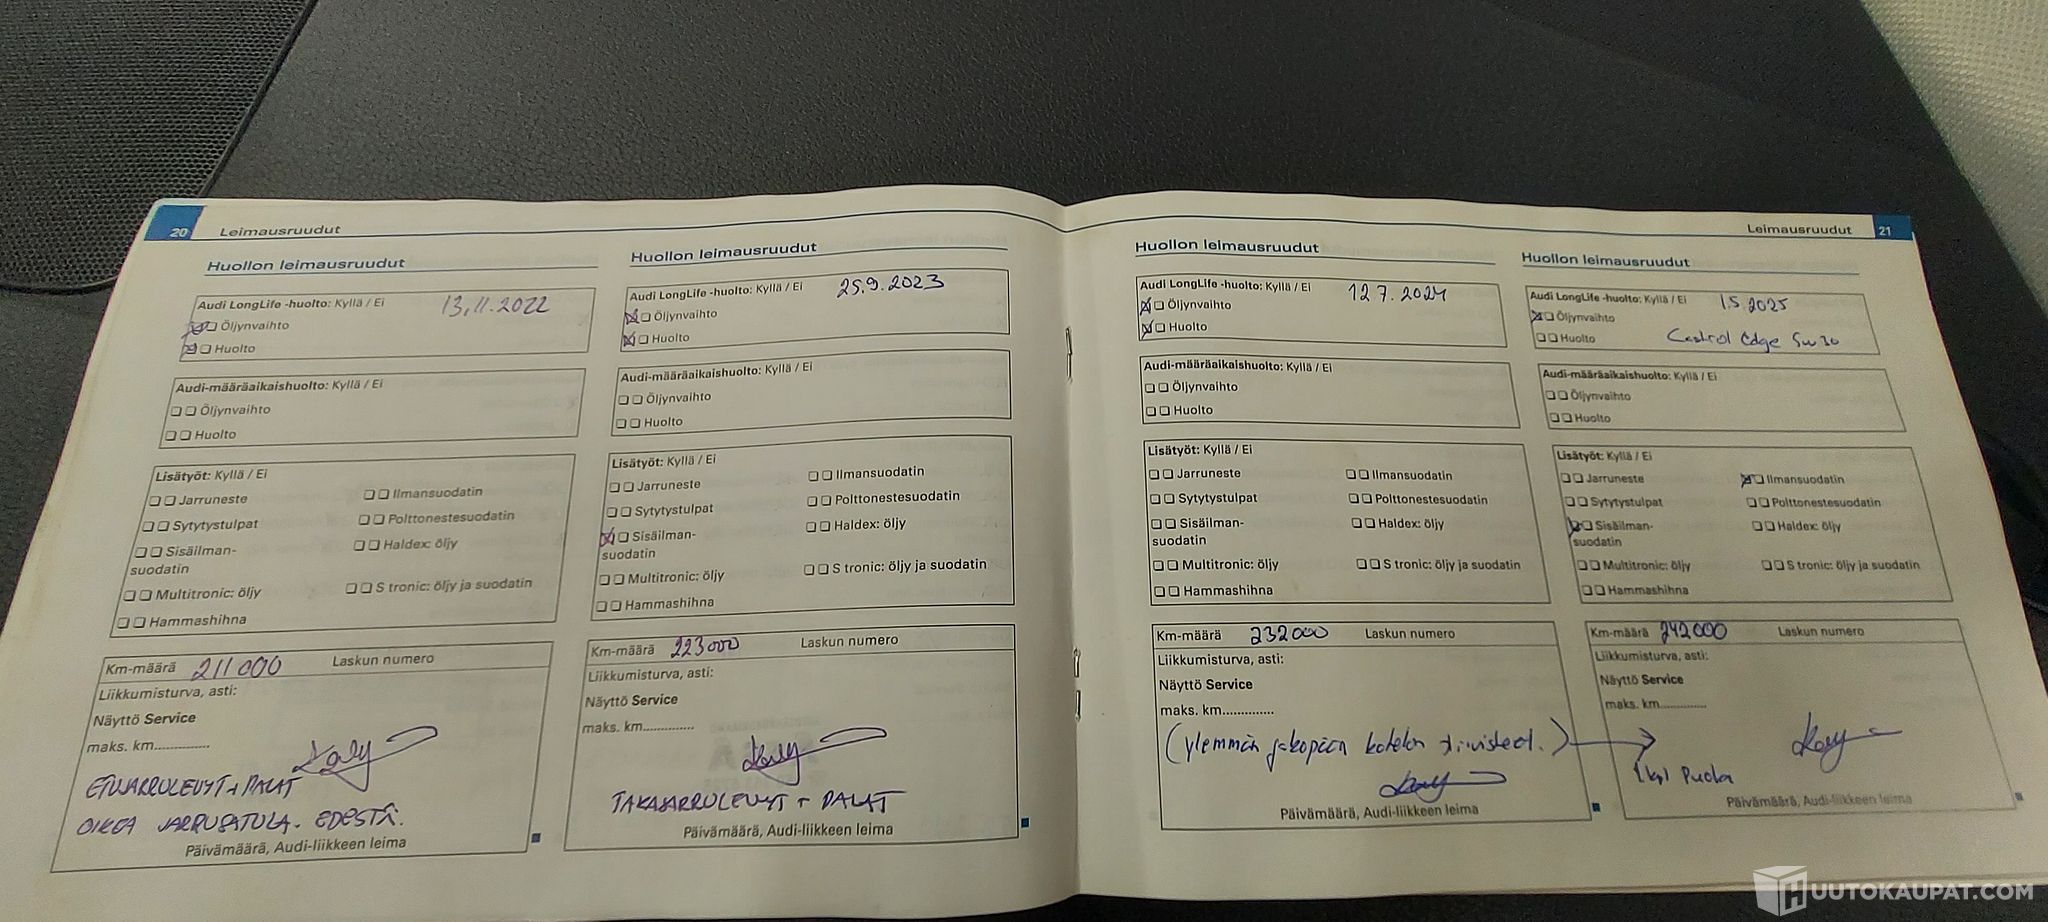 20 Leimausruudut
Huollon leimausruudut
Audi LongLife -huolto: Kyllä / Ei 13.11.2022
Öljynvaihto
Huolto
Audi-määräaikaishuolto: Kyllä / Ei
Öljynvaihto
Huolto
Lisätyöt: Kyllä / Ei
Jarruneste Ilmansuodatin
Sytytystulpat Polttonestesuodatin
Sisäilman- Haldex: öljy
suodatin
Multitronic: öljy S tronic: öljy ja suodatin
Hammashihna
Km-määrä 211000 Laskun numero
Liikkumisturva, asti:
Näyttö Service
maks. km..............
ETUJARRULEVYT + PALAT
OIKEA JARRUSATULA. EDESTÄ.
Päivämäärä, Audi-liikkeen leima
Huollon leimausruudut
Audi LongLife -huolto: Kyllä / Ei 25.9.2023
Öljynvaihto
Huolto
Audi-määräaikaishuolto: Kyllä / Ei
Öljynvaihto
Huolto
Lisätyöt: Kyllä / Ei
Jarruneste Ilmansuodatin
Sytytystulpat Polttonestesuodatin
Sisäilman- Haldex: öljy
suodatin
Multitronic: öljy S tronic: öljy ja suodatin
Hammashihna
Km-määrä 223000 Laskun numero
Liikkumisturva, asti:
Näyttö Service
maks. km..............
TAKAJARRULEVYT + PALAT
Päivämäärä, Audi-liikkeen leima
Leimausruudut 21
Huollon leimausruudut
Audi LongLife -huolto: Kyllä / Ei 12.7.2024
Öljynvaihto
Huolto
Audi-määräaikaishuolto: Kyllä / Ei
Öljynvaihto
Huolto
Lisätyöt: Kyllä / Ei
Jarruneste Ilmansuodatin
Sytytystulpat Polttonestesuodatin
Sisäilman- Haldex: öljy
suodatin
Multitronic: öljy S tronic: öljy ja suodatin
Hammashihna
Km-määrä 232000 Laskun numero
Liikkumisturva, asti:
Näyttö Service
maks. km..............
(ylemmän jakopään kotelon tiivisteet.)
Päivämäärä, Audi-liikkeen leima
Huollon leimausruudut
Audi LongLife -huolto: Kyllä / Ei 1.5.2025
Öljynvaihto
Huolto Castrol Edge 5w30
Audi-määräaikaishuolto: Kyllä / Ei
Öljynvaihto
Huolto
Lisätyöt: Kyllä / Ei
Jarruneste Ilmansuodatin
Sytytystulpat Polttonestesuodatin
Sisäilman- Haldex: öljy
suodatin
Multitronic: öljy S tronic: öljy ja suodatin
Hammashihna
Km-määrä 242000 Laskun numero
Liikkumisturva, asti:
Näyttö Service
maks. km..............
1kpl Puola
Päivämäärä, Audi-liikkeen leima
HUUTOKAUPAT.COM